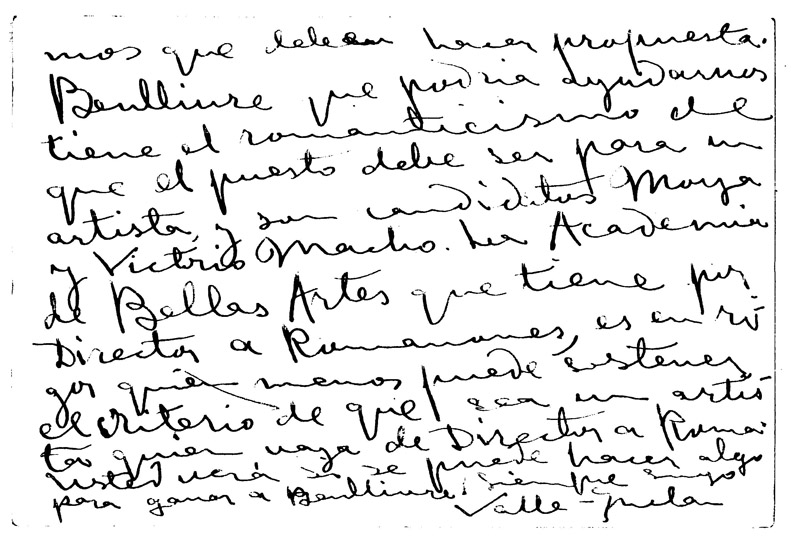 mos que deben hacer propuesta.
Benlliure que podria ayudarnos
tiene el romanticismo de
que el puesto debe ser para un
artista, y son candidatos Moya
y Victorio Macho. La Academia
de Bellas Artes que tiene por
Director a Romanones, es en ri-
gor quien menos puede sostener
el criterio de que sea un artis-
ta quien vaya de Director a Roma.
Usted verá si se puede hacer algo
para ganar a Benlliure. Siempre suyo
Valle-Inclan